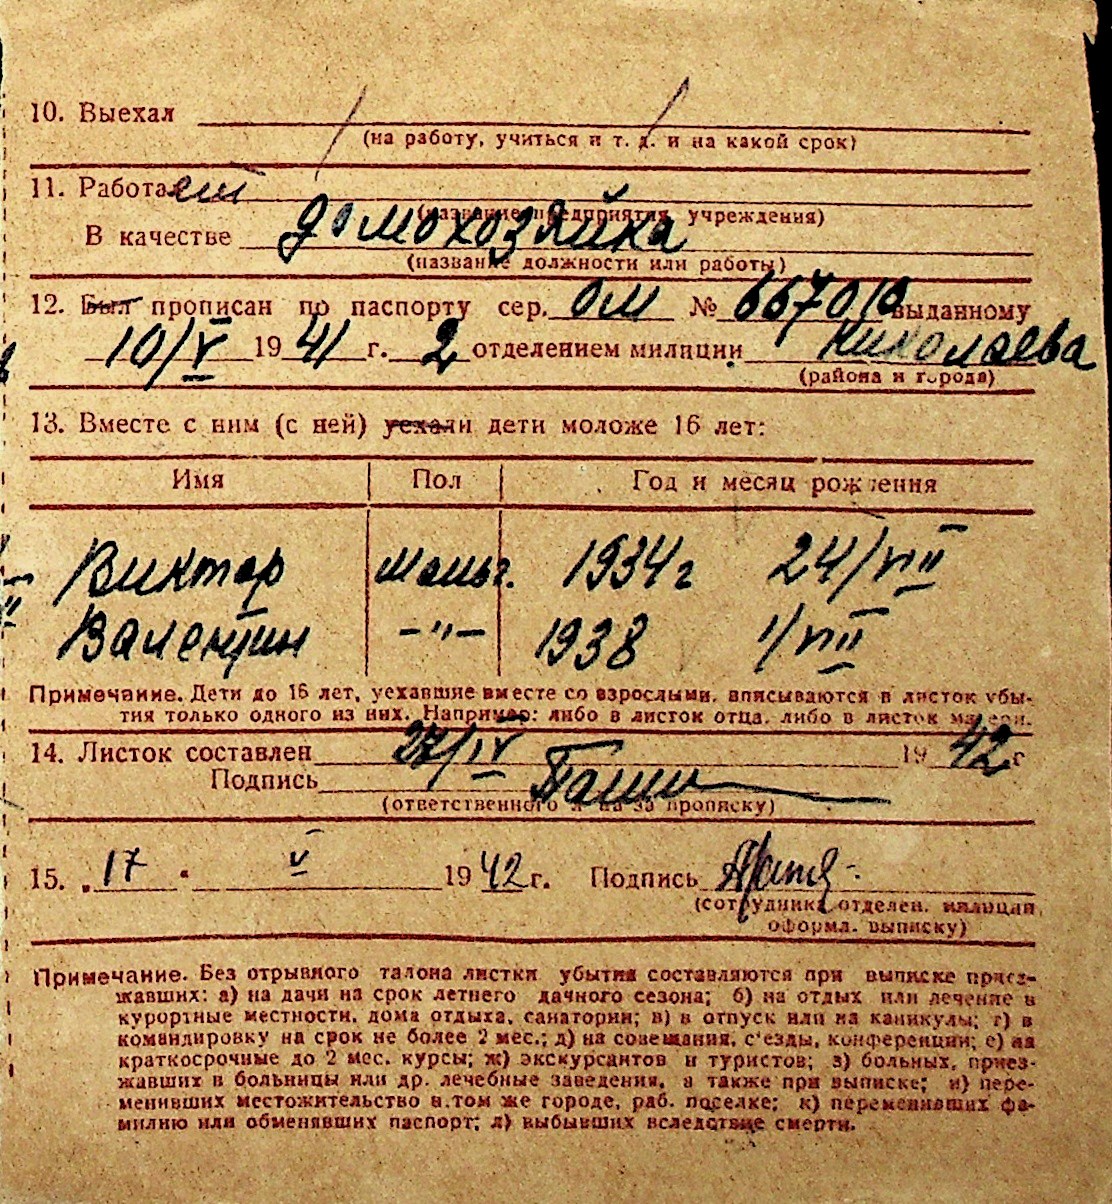 10. Выехал
(на работу, учиться и т. д. и на какой срок)
11. Работает
(название предприятия, учреждения)
В качестве домохозяйка
(название должности или работы)
12. Был прописан по паспорту сер. ОМ № 667010 выданному
10/V 1941 г. 2 отделением милиции Николаева
(района и города)
13. Вместе с ним (с ней) уехали дети моложе 16 лет:
Имя Пол Год и месяц рождения
Виктор мальч. 1934 г 24/VIII
Валентин –"– 1938 1/VIII
Примечание. Дети до 16 лет, уехавшие вместе со взрослыми, вписываются в листок убы-
тия только одного из них. Например: либо в листок отца, либо в листок матери.
14. Листок составлен 27/IV 1942 г
Подпись
(ответственного л-ца за прописку)
15. 17 V 1942 г. Подпись
(сотрудника отделен. милиции,
оформл. выписку)
Примечание. Без отрывного талона листки убытия составляются при выписке приез-
жавших: а) на дачи на срок летнего дачного сезона; б) на отдых или лечение в
курортные местности, дома отдыха, санатории; в) в отпуск или на каникулы; г) в
командировку на срок не более 2 мес.; д) на совещания, с'езды, конференции; е) на
краткосрочные до 2 мес. курсы; ж) экскурсантов и туристов; з) больных, приез-
жавших в больницы или др. лечебные заведения, а также при выписке; и) пере-
менивших местожительство в том же городе, раб. поселке; к) переменивших фа-
милию или обменявших паспорт; л) выбывших вследствие смерти.